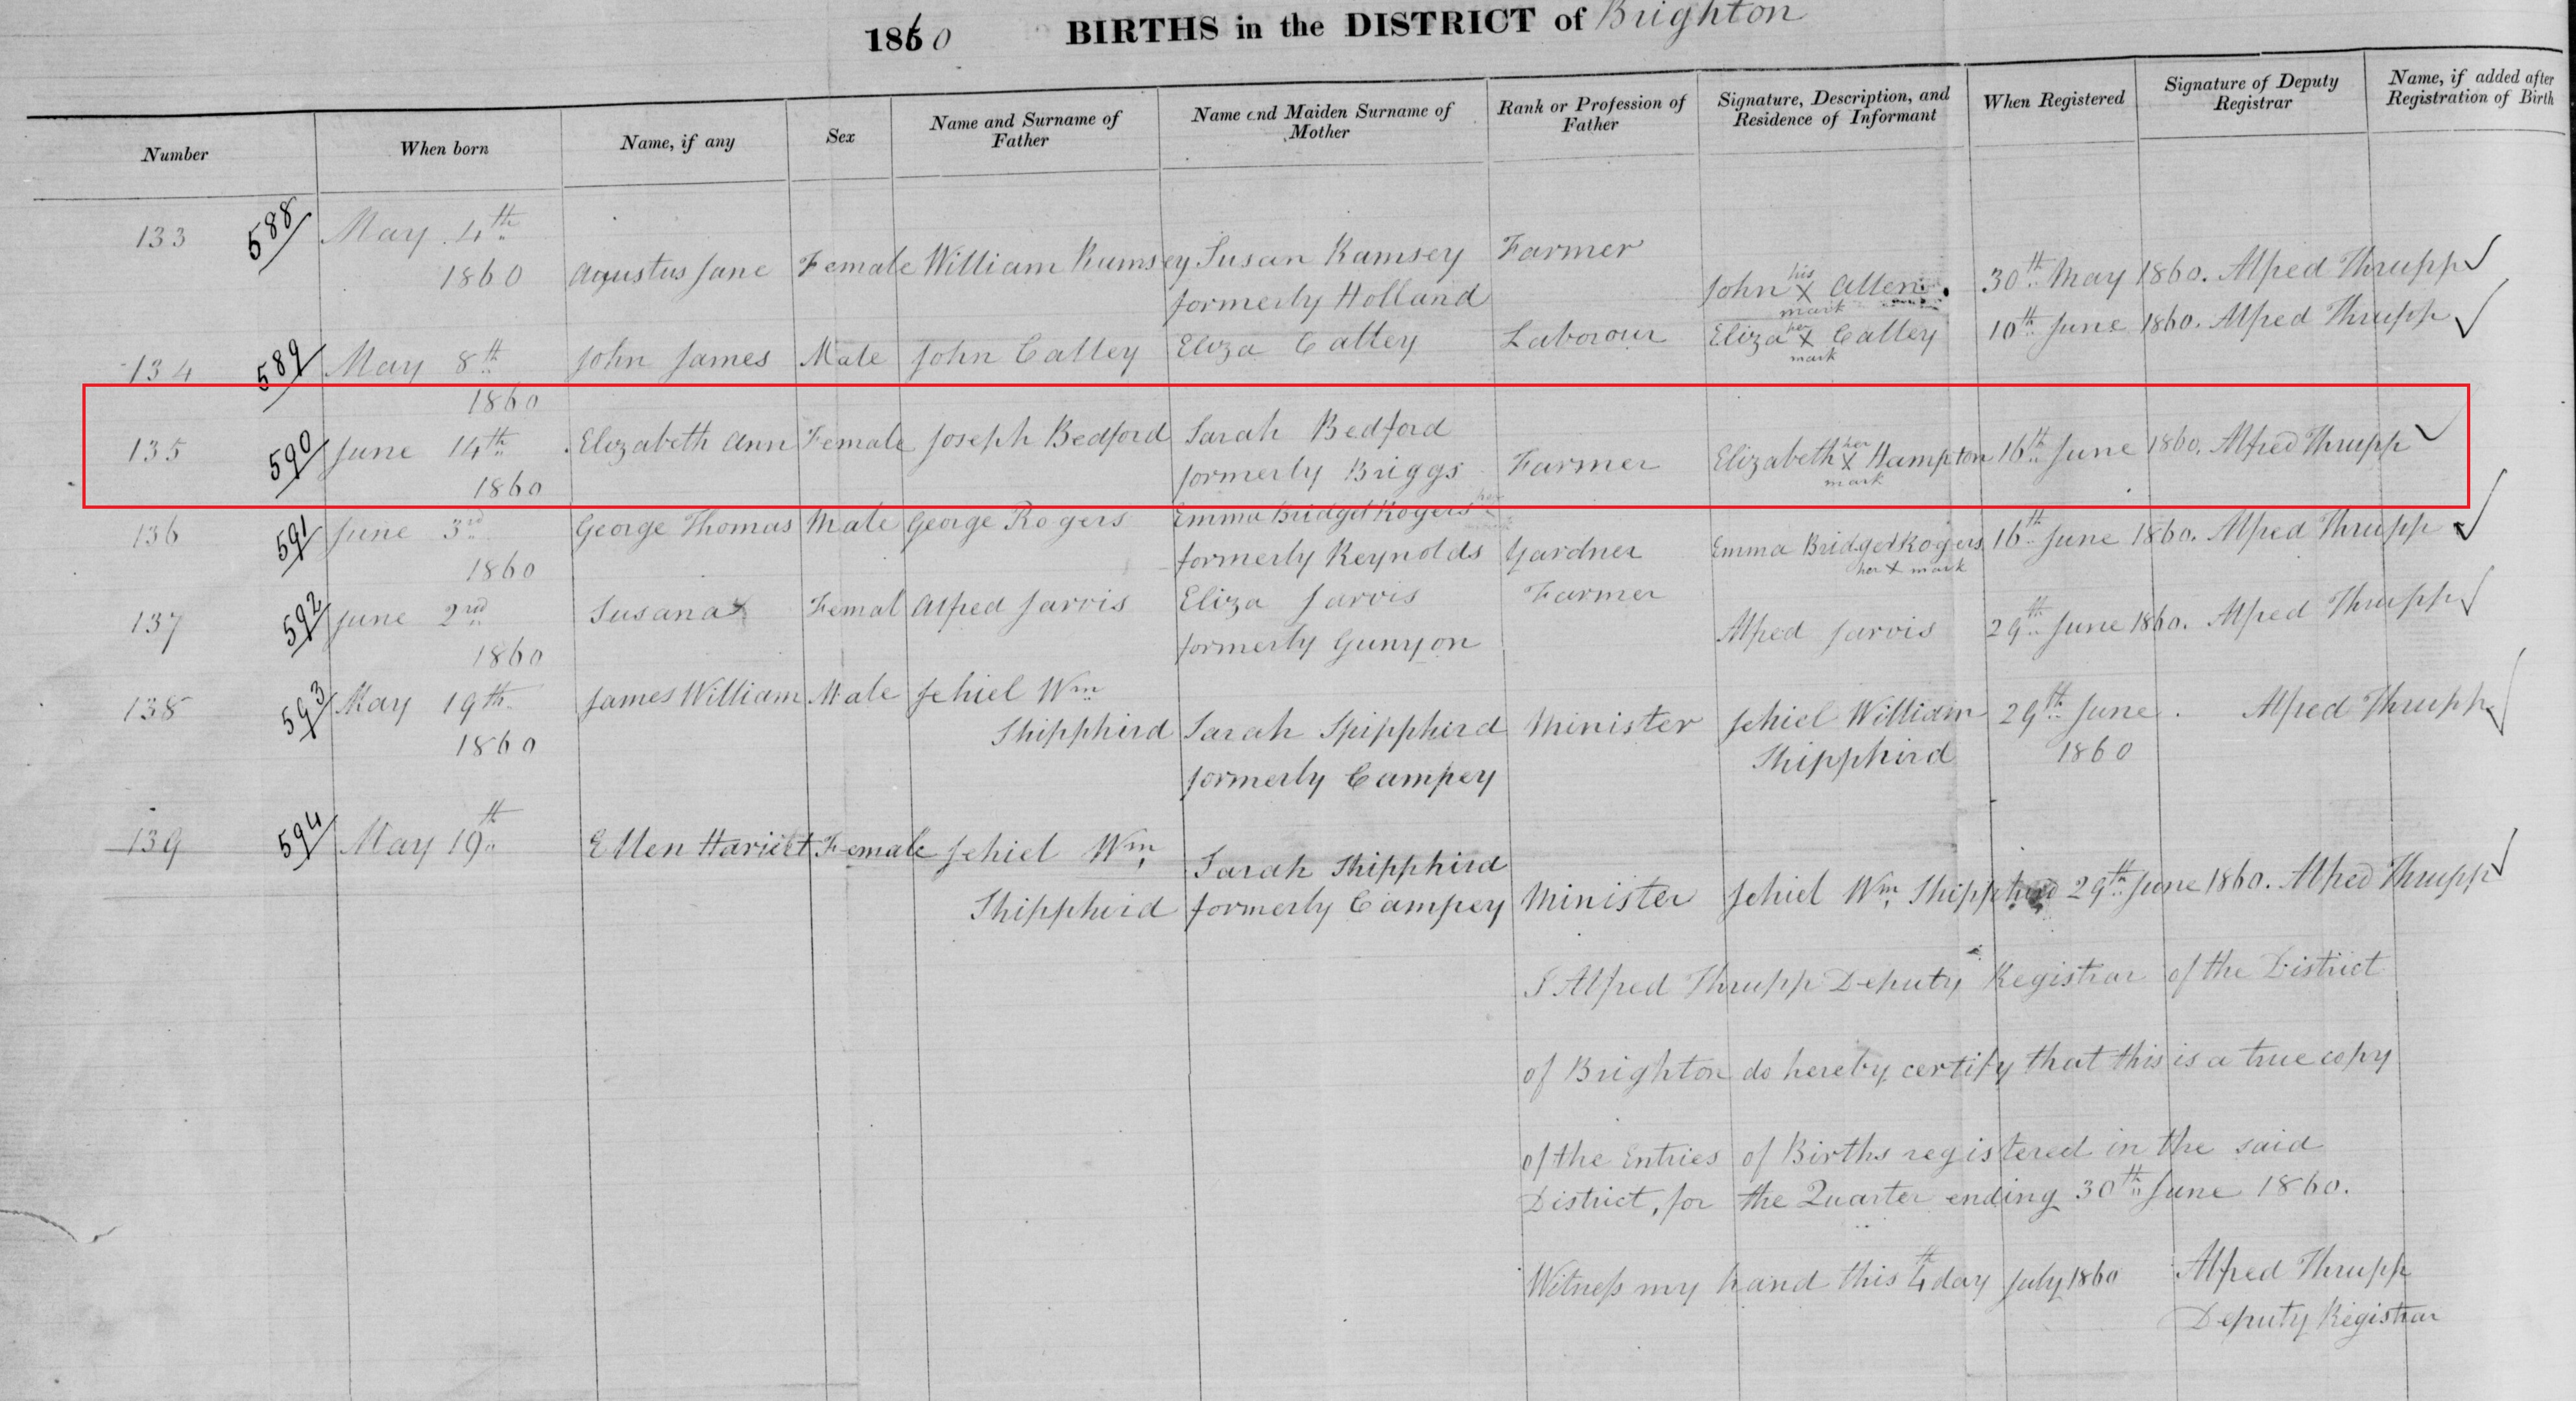 1860 BIRTHS in the DISTRICT of Brighton
Number | When born | Name, if any | Sex | Name and Surname of Father | Name and Maiden Surname of Mother | Rank or Profession of Father | Signature, Description, and Residence of Informant | When Registered | Signature of Deputy Registrar | Name, if added after Registration of Birth
133 588/ May 4th 1860 Agustus Jane Female William Ramsey Susan Ramsey formerly Holland Farmer John his X mark Allen 30th May 1860. Alfred Thrupp ✓
134 589/ May 8th 1860 John James Male John Catley Eliza Catley Laborour Eliza her X mark Catley 10th June 1860. Alfred Thrupp ✓
135 590/ June 14th 1860 Elizabeth Ann Female Joseph Bedford Sarah Bedford formerly Briggs Farmer Elizabeth her X mark Hampton 16th June 1860. Alfred Thrupp ✓
136 591/ June 3rd 1860 George Thomas Male George Rogers Emma Bridget Rogers formerly Reynolds Gardner Emma Bridget Rogers her X mark 16th June 1860. Alfred Thrupp ✓
137 592/ June 2nd 1860 Susana Femal Alfred Jarvis Eliza Jarvis formerly Gunyon Farmer Alfred Jarvis 29th June 1860. Alfred Thrupp ✓
138 593/ May 19th 1860 James William Male Jehiel Wm Shipphird Sarah Spipphird formerly Campey Minister Jehiel William Shipphird 29th June 1860 Alfred Thrupp ✓
139 594/ May 19th Ellen Hariett Female Jehiel Wm Shipphird Sarah Shipphird formerly Campey Minister Jehiel Wm Shipphird 29th June 1860. Alfred Thrupp ✓
I Alfred Thrupp Deputy Registrar of the District
of Brighton do hereby certify that this is a true copy
of the Entries of Births registered in the said
District, for the Quarter ending 30th June 1860.
Witness my hand this 4th day July 1860 Alfred Thrupp
Deputy Registrar